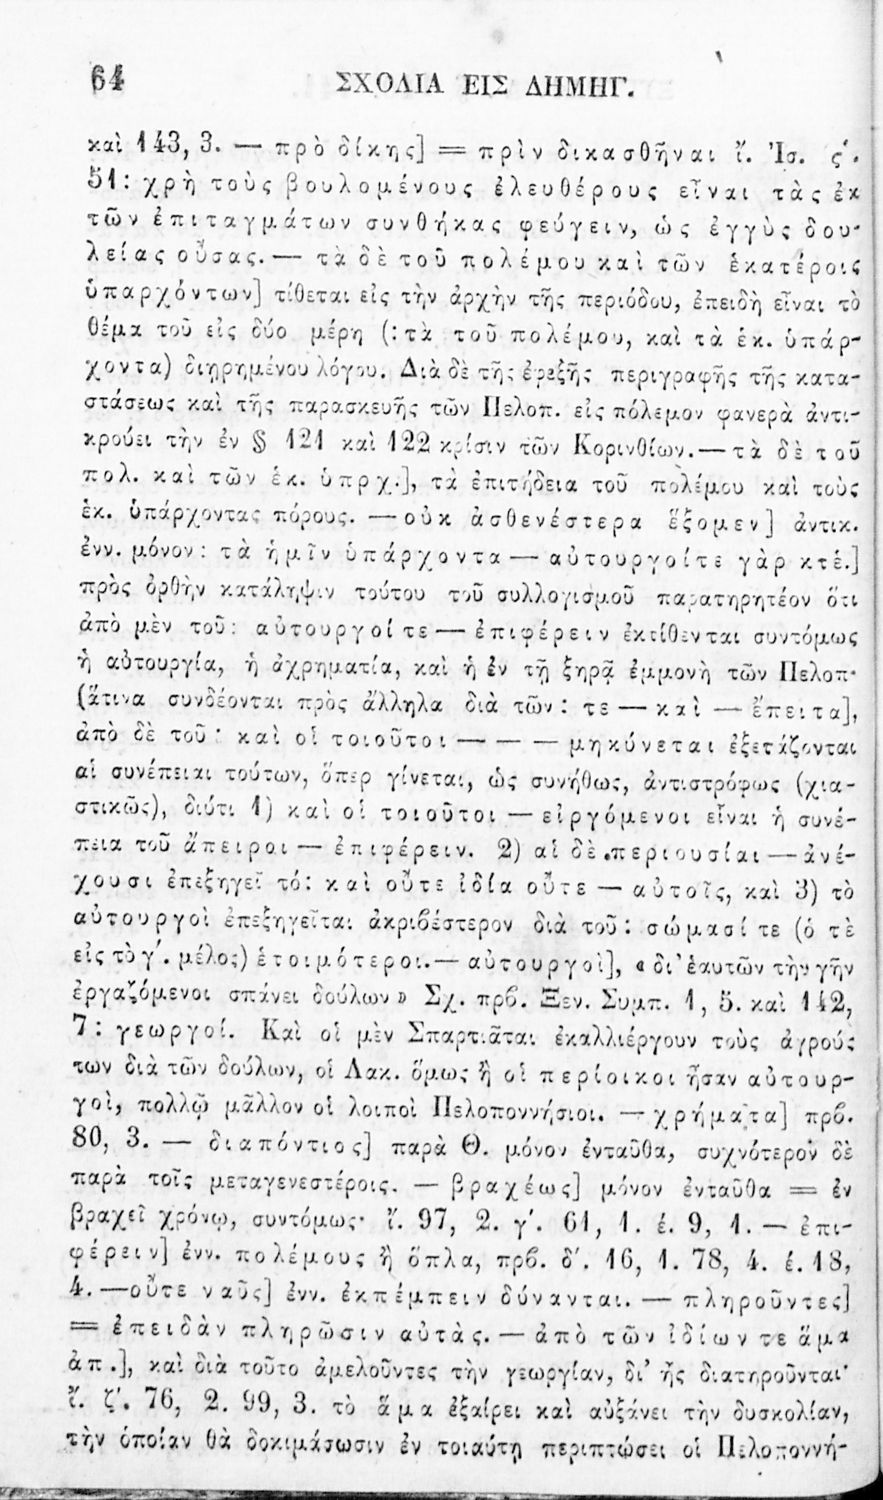 64 ΣΧΟΛΙΑ ΕΙΣ ΔΗΜΗΓ.
καὶ 143, 3. — πρὸ δίκης] = πρὶν δικασθῆναι ἴ. Ἰσ. ς΄.
51: χρὴ τοὺς βουλομένους ἐλευθέρους εἶναι τὰς ἐκ
τῶν ἐπιταγμάτων συνθήκας φεύγειν, ὡς ἐγγὺς δου-
λείας οὖσας. — τὰ δὲ τοῦ πολέμου καὶ τῶν ἑκατέροις
ὑπαρχόντων] τίθεται εἰς τὴν ἀρχὴν τῆς περιόδου, ἐπειδὴ εἶναι τὸ
θέμα τοῦ εἰς δύο μέρη (: τὰ τοῦ πολέμου, καὶ τὰ ἑκ. ὑπάρ-
χοντα) διῃρημένου λόγου. Διὰ δὲ τῆς ἐφεξῆς περιγραφῆς τῆς κατα-
στάσεως καὶ τῆς παρασκευῆς τῶν Πελοπ. εἰς πόλεμον φανερὰ ἀντι-
κρούει τὴν ἐν § 121 καὶ 122 κρίσιν τῶν Κορινθίων. — τὰ δὲ τοῦ
πολ. καὶ τῶν ἑκ. ὑπρχ.], τὰ ἐπιτήδεια τοῦ πολέμου καὶ τοὺς
ἑκ. ὑπάρχοντας πόρους. — οὐκ ἀσθενέστερα ἕξομεν] ἀντικ.
ἐνν. μόνον: τὰ ἡμῖν ὑπάρχοντα — αὐτουργοίτε γὰρ κτἑ.]
πρὸς ὀρθὴν κατάληψιν τούτου τοῦ συλλογισμοῦ παρατηρητέον ὅτι
ἀπὸ μὲν τοῦ: αὐτουργοί τε — ἐπιφέρειν ἐκτίθενται συντόμως
ἡ αὐτουργία, ἡ ἀχρηματία, καὶ ἡ ἐν τῇ ξηρᾷ ἐμμονὴ τῶν Πελοπ·
(ἅτινα συνδέονται πρὸς ἄλληλα διὰ τῶν: τε — καὶ — ἔπειτα],
ἀπὸ δὲ τοῦ: καὶ οἱ τοιοῦτοι — — — μηκύνεται ἐξετάζονται
αἱ συνέπειαι τούτων, ὅπερ γίνεται, ὡς συνήθως, ἀντιστρόφως (χια-
στικῶς), διότι 1) καὶ οἱ τοιοῦτοι — εἰργόμενοι εἶναι ἡ συνέ-
πεια τοῦ ἄπειροι — ἐπιφέρειν. 2) αἱ δὲ περιουσίαι — ἀνέ-
χουσι ἐπεξηγεῖ τό: καὶ οὔτε ἰδία οὔτε — αὐτοῖς, καὶ 3) τὸ
αὐτουργοὶ ἐπεξηγεῖται ἀκριβέστερον διὰ τοῦ: σώμασί τε (ὁ τὲ
εἰς τὸ γ΄. μέλος) ἑτοιμότεροι. — αὐτουργοὶ], « δι' ἑαυτῶν τὴν γῆν
ἐργαζόμενοι σπάνει δούλων » Σχ. πρβ. Ξεν. Συμπ. 1, 5. καὶ 142,
7: γεωργοί. Καὶ οἱ μὲν Σπαρτιᾶται ἐκαλλιέργουν τοὺς ἀγρούς
των διὰ τῶν δούλων, οἱ Λακ. ὅμως ἢ οἱ περίοικοι ἦσαν αὐτουρ-
γοὶ, πολλῷ μᾶλλον οἱ λοιποὶ Πελοποννήσιοι. — χρήματα] πρβ.
80, 3. — διαπόντιος] παρὰ Θ. μόνον ἐνταῦθα, συχνότερον δὲ
παρὰ τοῖς μεταγενεστέροις. — βραχέως] μόνον ἐνταῦθα = ἐν
βραχεῖ χρόνῳ, συντόμως· ἴ. 97, 2. γ΄. 61, 1. έ. 9, 1. — ἐπι-
φέρειν] ἐνν. πολέμους ἢ ὅπλα, πρβ. δ΄. 16, 1. 78, 4. έ. 18,
4. — οὔτε ναῦς] ἐνν. ἐκπέμπειν δύνανται. — πληροῦντες]
= ἐπειδὰν πληρῶσιν αὐτὰς. — ἀπὸ τῶν ἰδίων τε ἅμα
ἀπ.], καὶ διὰ τοῦτο ἀμελοῦντες τὴν γεωργίαν, δι' ἧς διατηροῦνται·
ἴ. ζ΄. 76, 2. 99, 3. τὸ ἅμα ἐξαίρει καὶ αὐξάνει τὴν δυσκολίαν,
τὴν ὁποίαν θὰ δοκιμάσωσιν ἐν τοιαύτῃ περιπτώσει οἱ Πελοποννή-